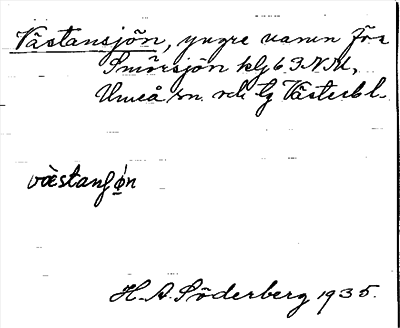 Västansjön, yngre namn för
Smörsjön klg 6 3 NM,
Umeå sn. och lg Västerbl.
væ̀stanʃøn
H. A. Söderberg 1935.